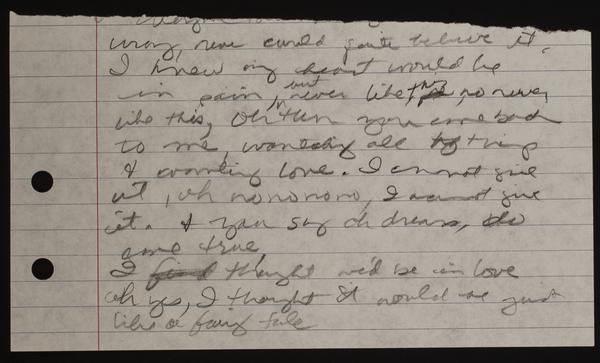 wrong, never could quite believe it.
I knew my heart would be
in pain, but never like this, no never
like this, Oh then you come back
to me, wanting all things
& wanting love. I cannot give
it, oh no no no no, I cannot give
it. & you say oh dreams, do
come true,
I thought we'd be in love
oh yes, I thought it would be just
like a fairy tale